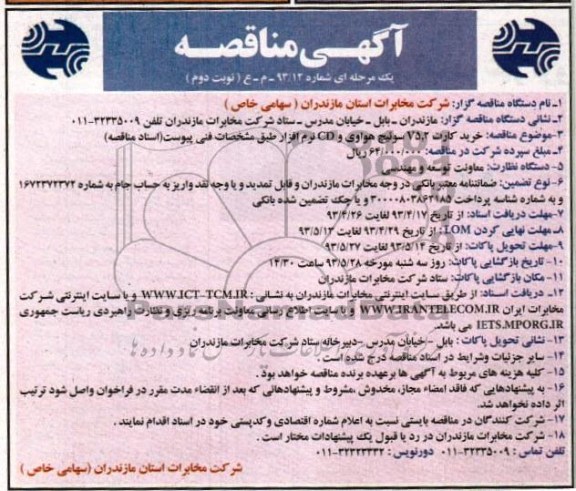 آگهی مناقصه
یک مرحله ای شماره ۹۳/۱۲ ـ م ـ ع ( نوبت دوم )
۱ـ نام دستگاه مناقصه گزار: شرکت مخابرات استان مازندران ( سهامی خاص )
۲ـ نشانی دستگاه مناقصه گزار: مازندران ـ بابل ـ خیابان مدرس ـ ستاد شرکت مخابرات مازندران تلفن ۳۲۳۳۵۰۰۹-۰۱۱
۳ـ موضوع مناقصه: خرید کارت V5.2 سوئیچ هواوی و CD نرم افزار طبق مشخصات فنی پیوست(اسناد مناقصه)
۴ـ مبلغ سپرده شرکت در مناقصه: ۶۴/۰۰۰/۰۰۰ ریال
۵- دستگاه نظارت: معاونت توسعه و مهندسی
۶- نوع تضمین: ضمانتنامه معتبر بانکی در وجه مخابرات مازندران و قابل تمدید و یا وجه نقد واریز به حساب جام به شماره ۱۶۷۲۳۷۲۳۷۲
و به شماره شناسه پرداخت ۳۰۰۰۰۸۰۳۸۶۲۹۸۵ و یا چک تضمین شده بانکی
۷-مهلت دریافت اسناد: از تاریخ ۹۳/۴/۱۷ لغایت ۹۳/۴/۲۶
۸-مهلت نهایی کردن LOM : از تاریخ ۹۳/۴/۲۹ لغایت ۹۳/۵/۱۳
۹-مهلت تحویل پاکات: از تاریخ ۹۳/۵/۱۴ لغایت ۹۳/۵/۲۷
۱۰- تاریخ بازگشایی پاکات: روز سه شنبه مورخه ۹۳/۵/۲۸ ساعت ۱۴/۳۰
۱۱- مکان بازگشایی پاکات: ستاد شرکت مخابرات مازندران
۱۲- دریافت اسناد: از طریق سایت اینترنتی مخابرات مازندران به نشانی : WWW.ICT-TCM.IR و یا سایت اینترنتی شرکت
مخابرات ایران WWW.IRANTELECOM.IR و یا سایت اطلاع رسانی معاونت برنامه ریزی و نظارت راهبردی ریاست جمهوری
IETS.MPORG.IR می باشد.
۱۳- نشانی تحویل پاکات : بابل -خیابان مدرس -دبیرخانه ستاد شرکت مخابرات مازندران
۱۴- سایر جزئیات وشرایط در اسناد مناقصه درج شده است .
۱۵- کلیه هزینه های مربوط به آگهی ها برعهده برنده مناقصه خواهد بود .
۱۶- به پیشنهادهایی که فاقد امضاء مجاز، مخدوش ،مشروط و پیشنهادهائی که بعد از انقضاء مدت مقرر در فراخوان واصل شود ترتیب
اثر داده نخواهد شد.
۱۷- شرکت کنندگان در مناقصه بایستی نسبت به اعلام شماره اقتصادی و کدپستی خود در اسناد اقدام نمایند .
۱۸- شرکت مخابرات مازندران در رد یا قبول یک پیشنهادات مختار است .
تلفن تماس : ۳۲۳۳۵۰۰۹-۰۱۱ دورنویس : ۳۲۳۲۳۲۳۲-۰۱۱
شرکت مخابرات استان مازندران (سهامی خاص )